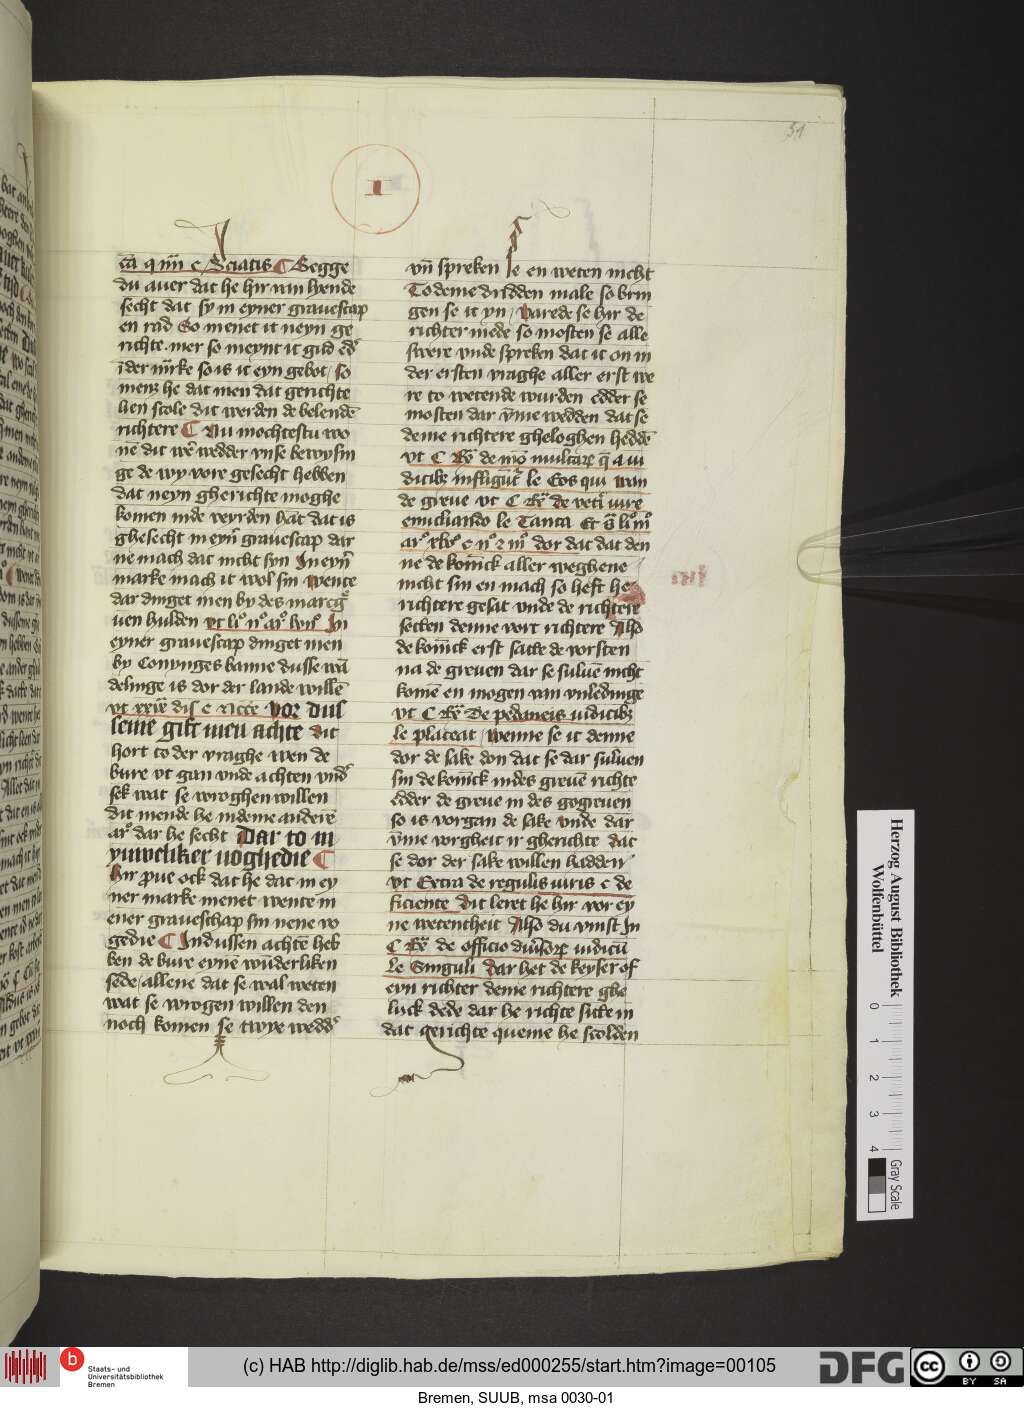 51
I
cā q iiii c Sciatis Segge
du auer dat he hir van hende
secht dat sy in eyner grauescap
en rad So menet it neyn ge
richte mer so meynt it gild edʼ
ī der m̄rke so is it eyn gebot so
menz he dat men dat gerichte
lien scole dit werden de belendē
richtere Nu mochtestu wo
nē dit wʼe wedder vnse bewysin
ge de wy vore gesecht hebben
dat neyn gherichte moghe
komen inde veyrden hāt dat is
ghesecht in eynʼ grauescap dar
ne mach dat nicht syn In eynʼ
marke mach it wol sin wente
dar dinget men by des marcgʼ
uen hulden vt li° iii° ar° lxiii° In
eyner grauescap dinget men
by Conynges banne dusse wā
delinge is dor der lande willē
vt xxix dis c Necce vor dus
seme gift men achte dit
hort to der vraghe wen de
bure vt gan vnde achten vndʼ
sek wat se wroghen willen
dit mende he indeme anderē
ar° dar he secht Dar to in
yuweliker uoghedie
Hir pue ock dat he dat in ey
ner marke menet wente in
ener graueschap sin nene vo
gedie In dussen achtē heb
ben de bure eynē wūderliken
sede allene dat se wal weten
wat se wrogen willen den
noch komen se twye weddʼ
vn̄ spreken se en weten nicht
To deme dridden male so brin
gen se it yn warede se hir de
richter mede so mosten se alle
swere vnde spreken dat it on in
der ersten vraghe aller erst we
re to wetende wurden edder se
mosten dar v̄me wedden dat se
deme richtere gheloghen heddē
vt C Rʼ de mō multarꝝ q̄ a iu
dicibꝫ infligūtʼ le Eos qui wan
de greue vt C Rʼ de vetʼi iure
enucliando le Tanta Et
ar° xlv° c ii° z iii° dor dat dat den
ne de konīck aller weghene
nicht sin en mach so heft he
richtere gesat vnde de richtere
setten denne vort richtere Also
de konīck erst satte de vorsten
na de greuen dar se suluē nicht
komē en mogen van vnledinge
vt C Rʼ De pedaneis iudicibꝫ
le placeat wenne se it denne
dor de sake don dat se dar suluen
sin de konīck indes greuē richte
edder de greue in des gogreuen
so is vorgan de sake vnde dar
v̄me vorgheit ir gherichte dat
se dor der sake willen hadden
vt Extra de regulis iuris c de
ficiente dit leret he hir vor ey
ne wetentheit Also du vinst In
C Rʼ de officio diuʼsorꝝ iudicū
le Singuli dar het de keyser of
eyn richter deme richtere ghe
luck dede dar he richte sitte in
dat gerichte queme he scolden
Herzog August Bibliothek
Wolfenbüttel
0 1 2 3 4
Gray Scale
b Staats- und
Universitätsbibliothek
Bremen
(c) HAB http://diglib.hab.de/mss/ed000255/start.htm?image=00105
DFG
cc BY SA
Bremen, SUUB, msa 0030-01